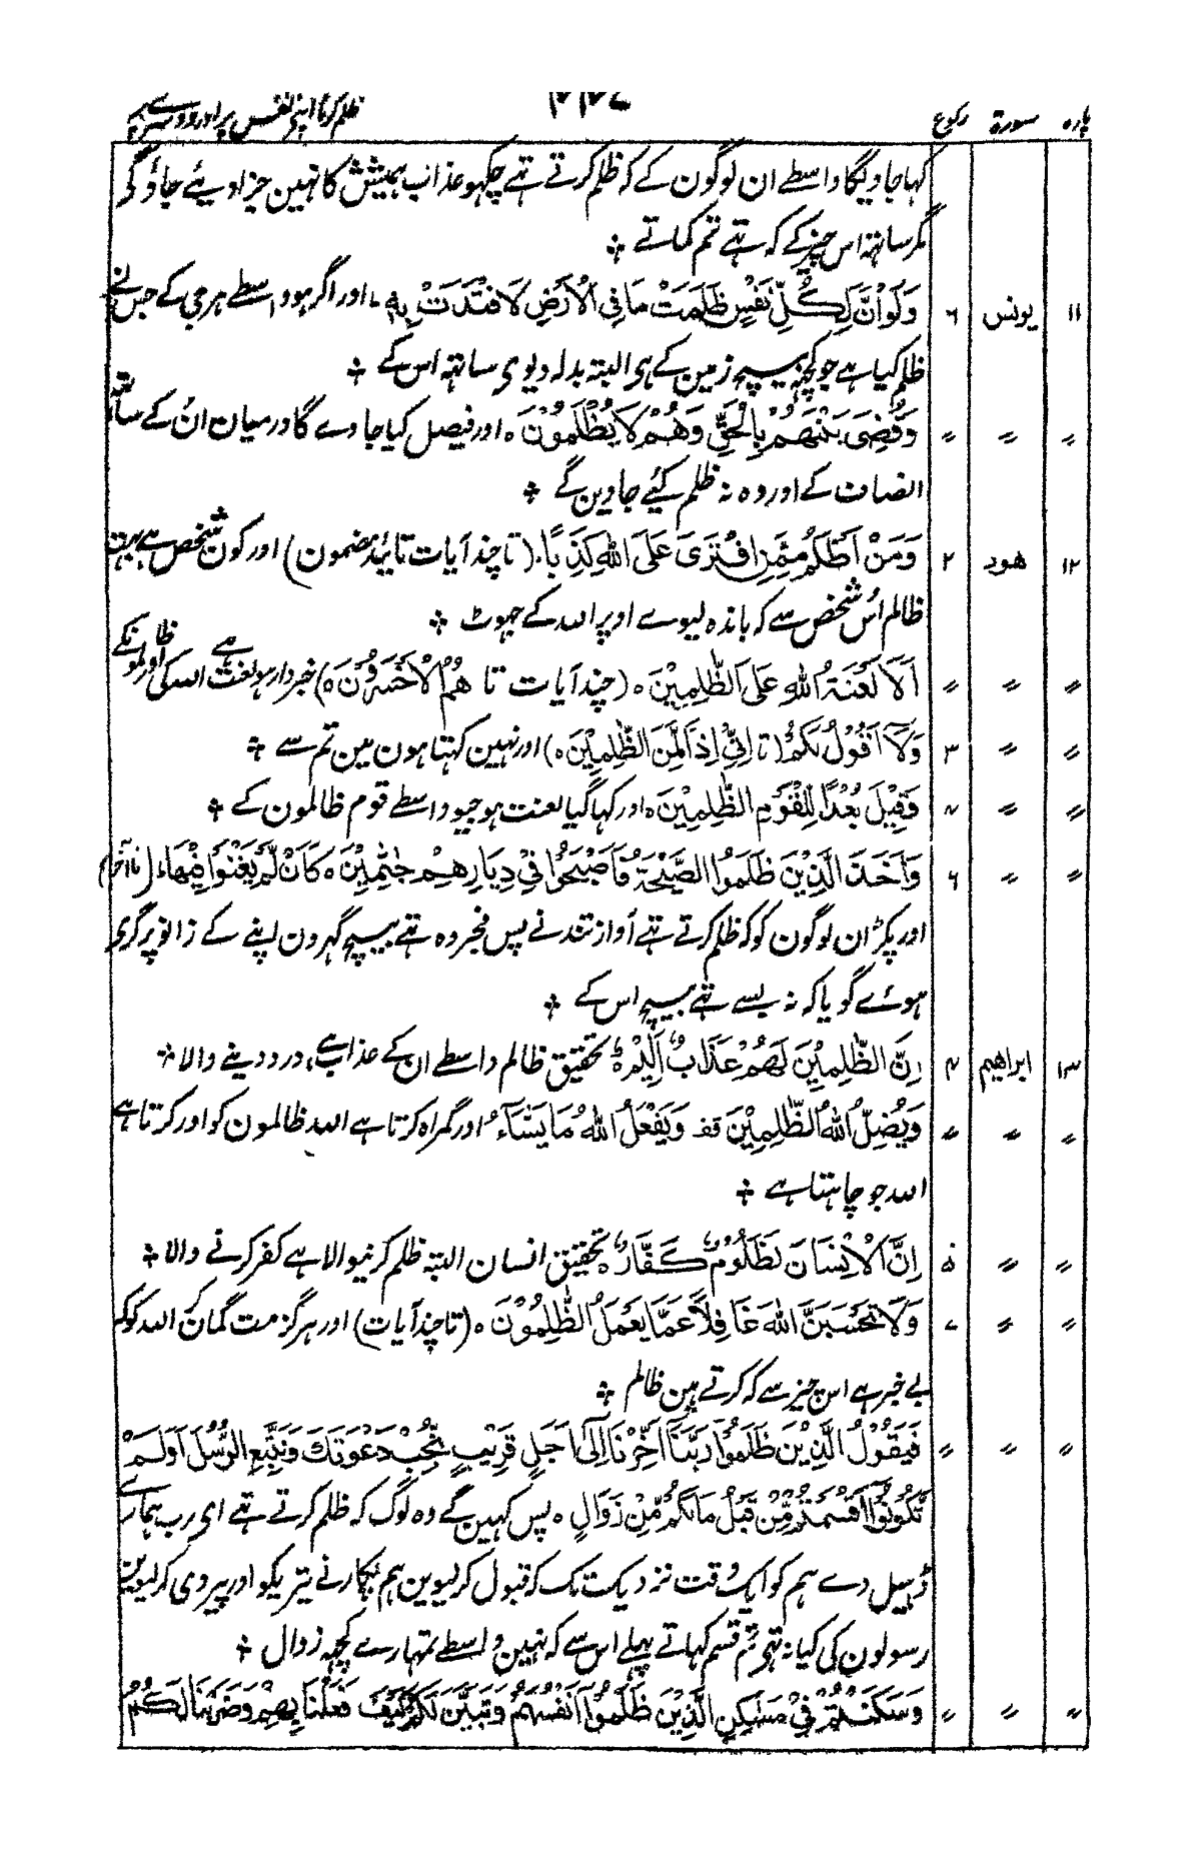 پارہ سورۃ رکوع ظلم کرنا اپنے نفس پر اور دوسرے پر
کہا جاویگا واسطے ان لوگون کے کہ ظلم کرتے تہے چکہو عذاب ہمیش کا نہین جزا دیئے جاؤ گی
مگر ساتہہ اس چیز کے کہ تہے تم کماتے ÷
۱۱ یونس ۶ وَلَوْ اَنَّ لِكُلِّ نَفْسٍ ظَلَمَتْ مَا فِی الْاَرْضِ لَافْتَدَتْ بِهٖ ۔ اور اگر ہو واسطے ہر جی کے جس نے
ظلم کیا ہے جو کچہہ بیچ زمین کے ہی البتہ بدلہ دیوی ساتہہ اس کے ÷
〃 〃 〃 وَقُضِیَ بَيْنَهُمْ بِالْحَقِّ وَهُمْ لَا يُظْلَمُوْنَ ہ اور فیصل کیا جاوے گا درمیان اُن کے ساتہہ
انصاف کے اور وہ نہ ظلم کئے جاوین گے ÷
۱۲ ھود ۲ وَمَنْ اَظْلَمُ مِمَّنِ افْتَرَیٰ عَلَی اللّٰهِ کَذِبًا. (تا چند آیات تائید مضمون) اور کون شخص ہے بہت
ظالم اُس شخص سے کہ باندہ لیوے اوپر اللہ کے جہوٹ ÷
〃 〃 〃 اَلَا لَعْنَةُ اللّٰهِ عَلَی الظّٰلِمِيْنَ ہ (چند آیات تا هُمُ الْاَخْسَرُوْنَ ہ) خبردار ہو لعنت ہے اللہ کی اوپر ظالمونکے
〃 〃 ۳ وَلَآ اَقُوْلُ لَكُمْ (تا اِنِّیْٓ اِذًا لَّمِنَ الظّٰلِمِيْنَ ہ) اور نہین کہتا ہون مین تم سے ÷
〃 〃 ۴ وَقِيْلَ بُعْدًا لِّلْقَوْمِ الظّٰلِمِيْنَ ہ اور کہا گیا لعنت ہو جیو واسطے قوم ظالمون کے ÷
〃 〃 ۶ وَاَخَذَ الَّذِيْنَ ظَلَمُوا الصَّيْحَةُ فَاَصْبَحُوْا فِیْ دِيَارِهِمْ جٰثِمِيْنَ ہ کَاَنْ لَّمْ يَغْنَوْا فِيْهَا ۔ (تا آخر)
اور پکڑا ان لوگون کو کہ ظلم کرتے تہے آواز تند نے پس فجر وہ تہے بیچ گہرون اپنے کے زانو پر گری
ہوئے گویا کہ نہ بسے تہے بیچ اس کے ÷
۱۳ ابراھیم ۴ اِنَّ الظّٰلِمِيْنَ لَهُمْ عَذَابٌ اَلِيْمٌ ہ تحقیق ظالم واسطے ان کے عذاب ہے، درد دینے والا ÷
〃 〃 〃 وَيُضِلُّ اللّٰهُ الظّٰلِمِيْنَ قف وَيَفْعَلُ اللّٰهُ مَا يَشَآءُ اور گمراہ کرتا ہے اللہ ظالمون کو اور کرتا ہے
اللہ جو چاہتا ہے ÷
〃 〃 ۵ اِنَّ الْاِنْسَانَ لَظَلُوْمٌ کَفَّارٌ ہ تحقیق انسان البتہ ظلم کرنیوالا ہے کفر کرنے والا ÷
〃 〃 ۷ وَلَا تَحْسَبَنَّ اللّٰهَ غَافِلًا عَمَّا يَعْمَلُ الظّٰلِمُوْنَ ہ (تا چند آیات) اور ہرگز مت گمان کر اللہ کو کہ
بے خبر ہے اس چیز سے کہ کرتے ہین ظالم ÷
〃 〃 〃 فَيَقُوْلُ الَّذِيْنَ ظَلَمُوْا رَبَّنَآ اَخِّرْنَآ اِلٰٓی اَجَلٍ قَرِيْبٍ نُّجِبْ دَعْوَتَكَ وَنَتَّبِعِ الرُّسُلَ اَوَلَمْ
تَكُوْنُوْٓا اَقْسَمْتُمْ مِّنْ قَبْلُ مَا لَكُمْ مِّنْ زَوَالٍ ہ پس کہین گے وہ لوگ کہ ظلم کرتے تہے ای رب ہمارے
ڈہیل دے ہم کو ایک وقت نزدیک تک کہ قبول کر لیوین ہم پکارنے تیریکو اور پیروی کر لیوین
رسولون کی کیا نہ تہے تم قسم کہاتے پہلے اس سے کہ نہین واسطے تمہارے کچہہ زوال ÷
〃 〃 〃 وَسَكَنْتُمْ فِیْ مَسٰكِنِ الَّذِيْنَ ظَلَمُوْٓا اَنْفُسَهُمْ وَتَبَيَّنَ لَكُمْ كَيْفَ فَعَلْنَا بِهِمْ وَضَرَبْنَا لَكُمُ